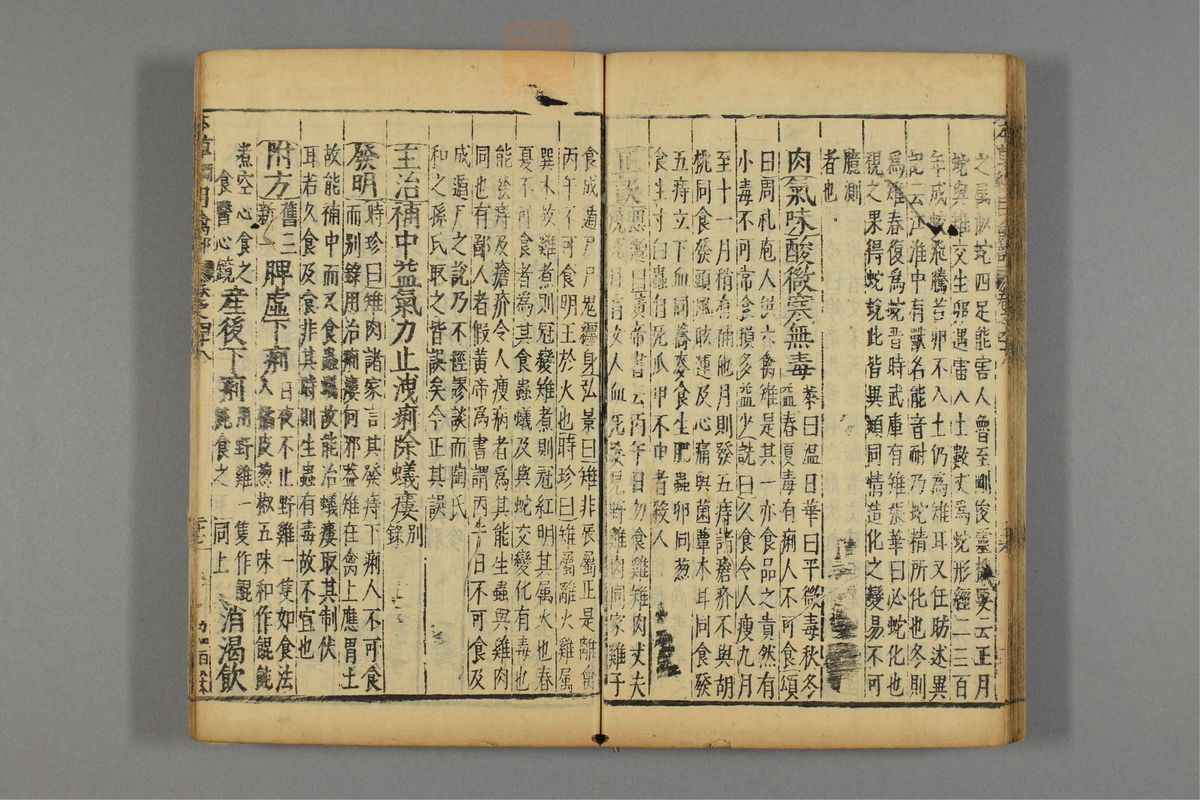 之屬似蛇四足能害人魯至剛俊靈機要云正月
蛇與雉交生卵遇雷入土數丈爲蛇形經二三百
年成蛟飛騰若卵不入土仍爲雉耳又任昉述異
記云江淮中有獸名能音耐乃蛇精所化也冬則
爲雉春復爲蛇晉時武庫有雉張華曰必蛇化也
視之果得蛇蛻此皆異類同情造化之變易不可
臆測
者也
肉氣味酸微寒無毒恭曰溫日華曰平微毒秋冬益春夏毒有痢人不可食頌
曰周礼庖人供六禽雉是其一亦食品之貴然有
小毒不可常食損多益少詵曰久食令人瘦九月
至十一月稍有補他月則發五痔諸瘡疥不與胡
桃同食發頭風眩運及心痛與菌蕈木耳同食發
五痔立下血同蕎麥食生肥蟲卵同葱
食生寸白蟲自死爪甲不伸者殺人
正誤思邈曰黃帝書云丙午日勿食雞雉肉丈夫
食成遁尸尸鬼纏身弘景曰雉非辰屬正是離禽
丙午不可食明王於火也時珍曰雉屬離火雞屬
巽木故雞煮則冠變雉煮則冠紅明其屬火也春
夏不可食者爲其食蟲蟻及與蛇交變化有毒也
能發痔及瘡疥令人瘦病者爲其能生蟲與雞肉
同也有鄙人者假黃帝爲書謂丙午日不可食及
成遁尸之說乃不經謬談而陶氏
和之孫氏取之皆誤矣今正其誤
主治補中益氣力止洩痢除蟻瘻別錄
發明時珍曰雉肉諸家言其發痔下痢人不可食
而別錄用治痢瘻何邪蓋雉在禽上應胃土
故能補中而又食蟲蟻故能治蟻瘻取其制伏
耳若久食及食非其時則生蟲有毒故不宜也
附方舊三新一脾虛下痢日夜不止野雞一隻如食法入橘皮葱椒五味和作餛飩
煮空心食之食醫心鏡產後下痢用野雞一隻作餛飩食之同上消渴飲